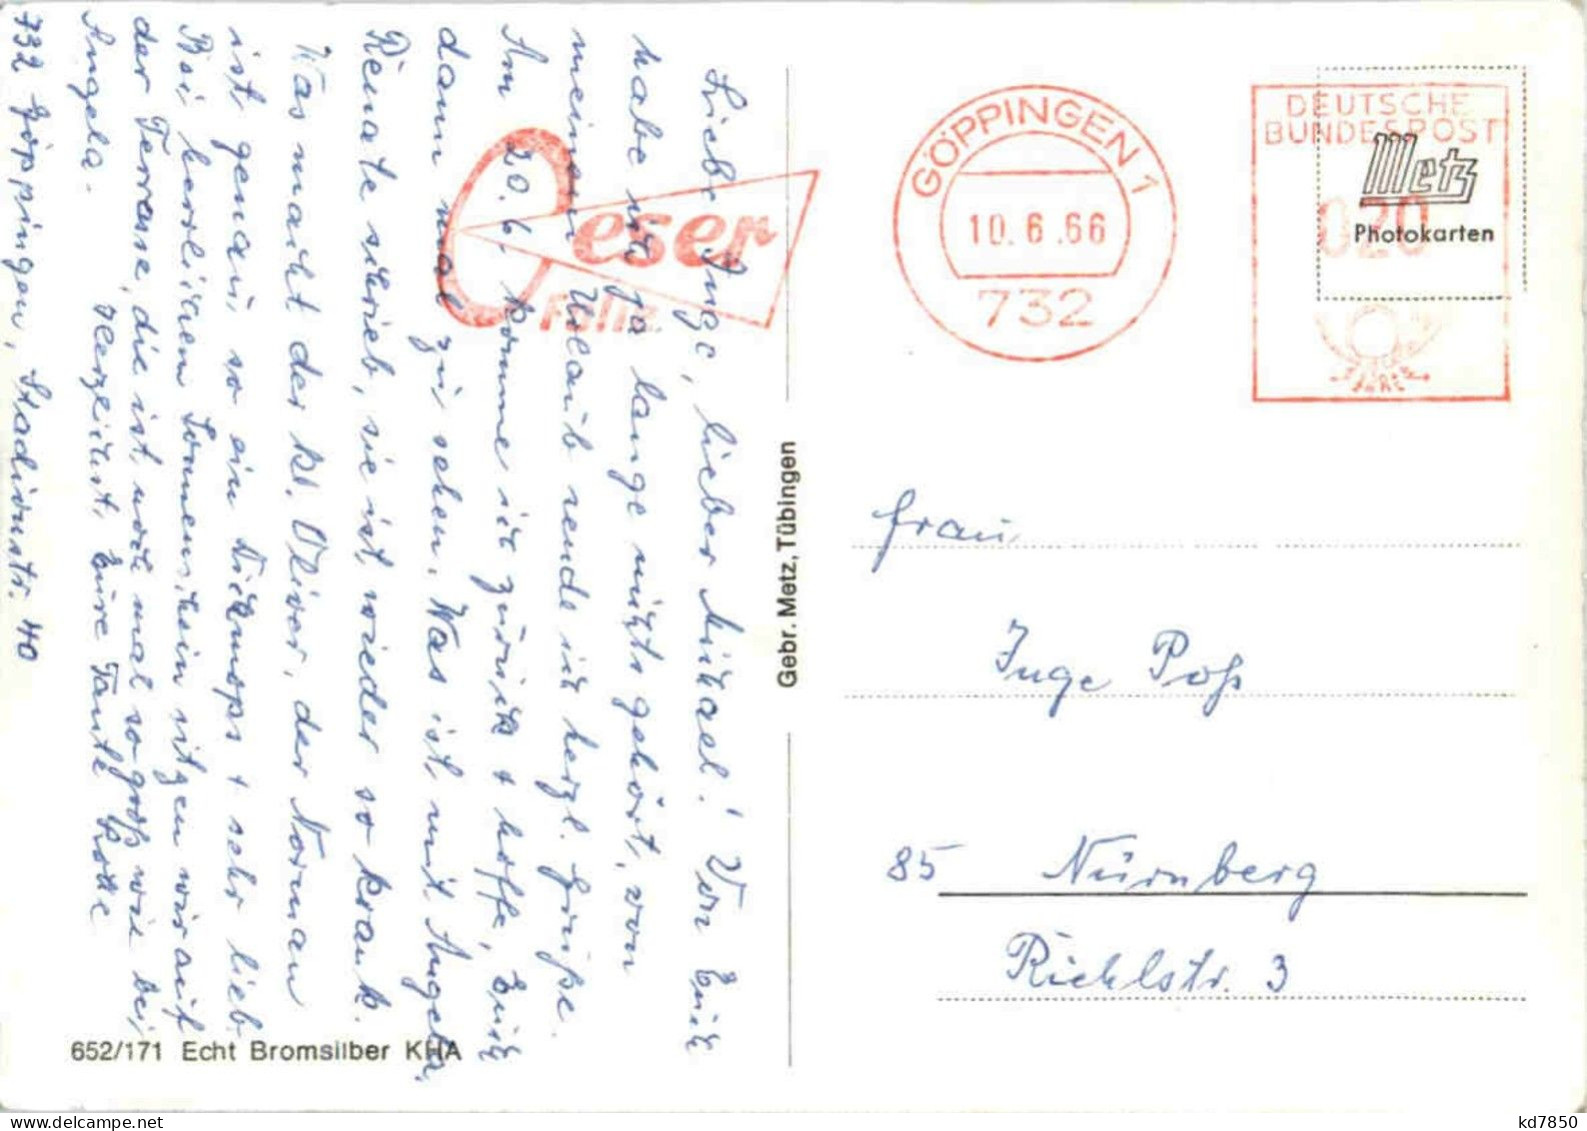 Liebe Inge, lieber Michael! Von Euch
habe ich ja lange nichts gehört, von
meinem Urlaub sende ich herzl. Grüße.
Am 20.6. komme ich zurück + hoffe, Euch
dann mal zu sehen. Was ist mit Angela,
Renate schrieb, sie ist wieder so krank.
Was macht der kl. Oliver, der Norman
ist genau so ein Dickmops + sehr lieb
Bei herrlichem Sonnenschein sitzen wir auf
der Terrasse, die ist noch mal so groß wie bei
Angela. Herzlichst, Eure Tante
732 Göppingen, Stadionstr. 40
Ceser
Filiz
GÖPPINGEN 1
10.6.66
732
DEUTSCHE
BUNDESPOST
Metz
020
Photokarten
Gebr. Metz, Tübingen
Frau
Inge Poß
85 Nürnberg
Richlstr. 3
652/171 Echt Bromsilber KHA
kd7850